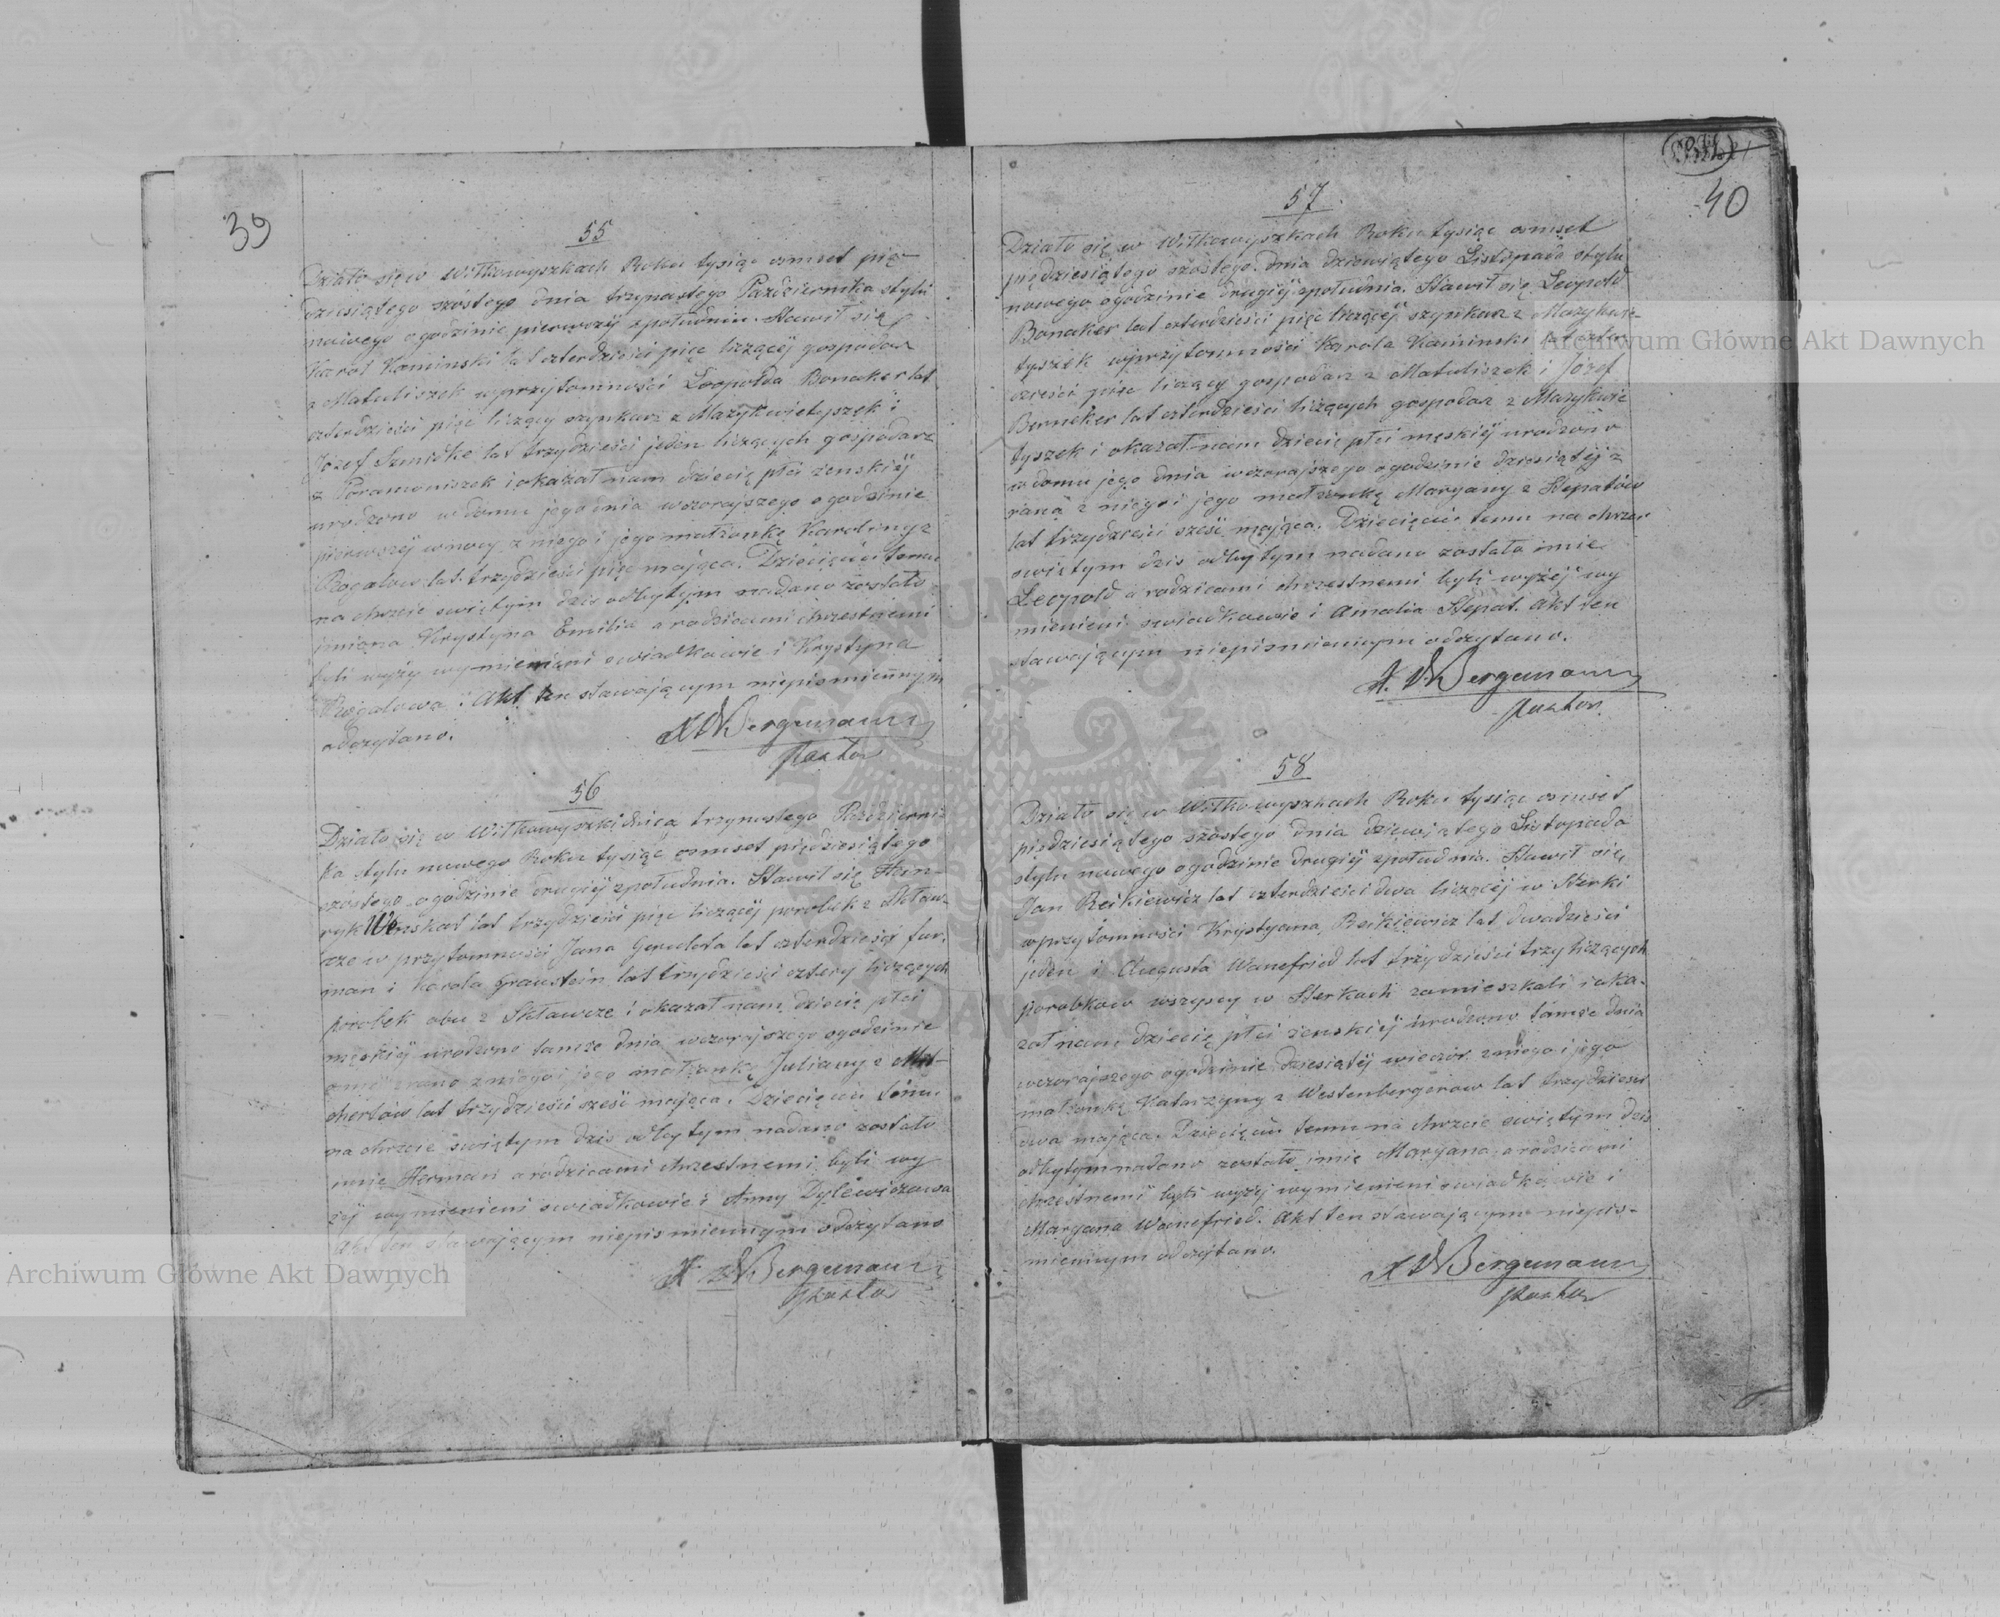 39
55
Działo się w Wiłkowyszkach Roku tysiąc osmset pięć
dziesiątego szóstego dnia trzynastego Października stylu
nowego ogodzinie pierwszéj zpołudnia. Stawił się
Karol Kaminski lat czterdzieści pięć liczącéj gospodarz
z Matuliszek wprzytomności Leopolda Bonaker lat
czterdzieści pięć liczący szynkarz z Mazykwietyszek i
Józef Szmidke lat trzydzieści jeden liczących gospodarz
z Poramoniszek i okazał nam dziecię płci zenskiéj
urodzono wdomu jego dnia wczorajszego ogodzinie
pierwszéj wnocy z niego i jego małżonkę Karoliny z
Rogalow lat trzydzieści pięć mająca. Dziecięciu temu
na chrzcie swiętym dzis odbytym nadano zostało
imiona Krystyna Emilia a rodzicami chrzestnemi
byli wyżéj wymienieni swiadkowie i Krystyna
Rogalowa. Akt ten stawającym niepismiennym
odczytano.
Bergemann
Pastor
56
Działo się w Wiłkowyszki dnia trzynastego Październi-
ka stylu nowego Roku tysiąc osmset pięćdziesiątego
szóstego ogodzinie drugiéj zpołudnia. Stawił się Hein-
ryk Wenskat lat trzydzieści pięć liczącéj porobek z Skław-
cze w przytomności Jana lat czterdzieści fur-
man i Karola Graustein lat trzydzieści cztery liczących
porobek obu z Skławcze i okazał nam dziecię płci
męskiéj urodzono tamże dnia wczorajszego ogodzinie
zrana zniego i jego małżonkę Julianny z Mel-
chertów lat trzydzieści sześć mająca. Dziecięciu temu
na chrzcie swiętym dzis odbytym nadano zostało
imię Herman a rodzicami chrzestnemi byli wy
żéj wymienieni swiadkowie i Anny Dylewiczowa
Akt ten stawającym niepismiennym odczytano
Bergemann
Pastor
40
57
Działo się w Wiłkowyszkach Roku tysiąc osmset
pięćdziesiątego szóstego dnia dziewiątego Listopada stylu
nowego ogodzinie drugiéj zpołudnia. Stawił się Leopold
Bonaker lat czterdzieści pięć liczącéj szynkarz z Mazykwie-
tyszek wprzytomności Karola Kaminski lat czter-
dzieści pięć liczący gospodarz z Matuliszek i Józef
Berneker lat czterdzieści liczących gospodarz z Mazykwie
tyszek i okazał nam dziecię płci męskiéj urodzono
w domu jego dnia wczorajszego ogodzinie dziesiątéj z
raną z niego i jego małżonkę Maryany z Stepatów
lat trzydzieści sześć mająca. Dziecięciu temu na chrzcie
swiętym dzis odbytym nadano zostało imie
Leopold a rodzicami chrzestnemi byli wyżéj wy
mienieni swiadkowie i Amalia Stepat. Akt ten
stawającym niepismiennym odczytano.
Bergemann
Pastor
58
Działo się w Wiłkowyszkach Roku tysiąc osmset
pięćdziesiątego szóstego dnia dziewiątego Listopada
stylu nowego ogodzinie drugiéj zpołudnia. Stawił się
Jan Reikiewicz lat czterdzieści dwa liczącéj w Sterki
wprzytomności Krystyana Reikiewicz lat dwadzieści
jeden i Augusta Wanefried lat trzydzieści trzy liczących
porobkow wszyscy w Sterkach zamieszkali i oka-
zał nam dziecię płci zenskiéj urodzono tamże dnia
wczorajszego ogodzinie dziesiątéj wieczór zniego i jego
małżonkę Katarzyny z Westenbergerow lat trzydzieści
dwa mająca. Dziecięciu temu na chrzcie swiętym dzis
odbytym nadano zostało imię Maryana a rodzicami
chrzestnemi byli wyżéj wymienieni swiadkowie i
Maryana Wanefried. Akt ten stawającym niepis-
miennym odczytano.
Bergemann
Pastor
Archiwum Główne Akt Dawnych
Archiwum Główne Akt Dawnych